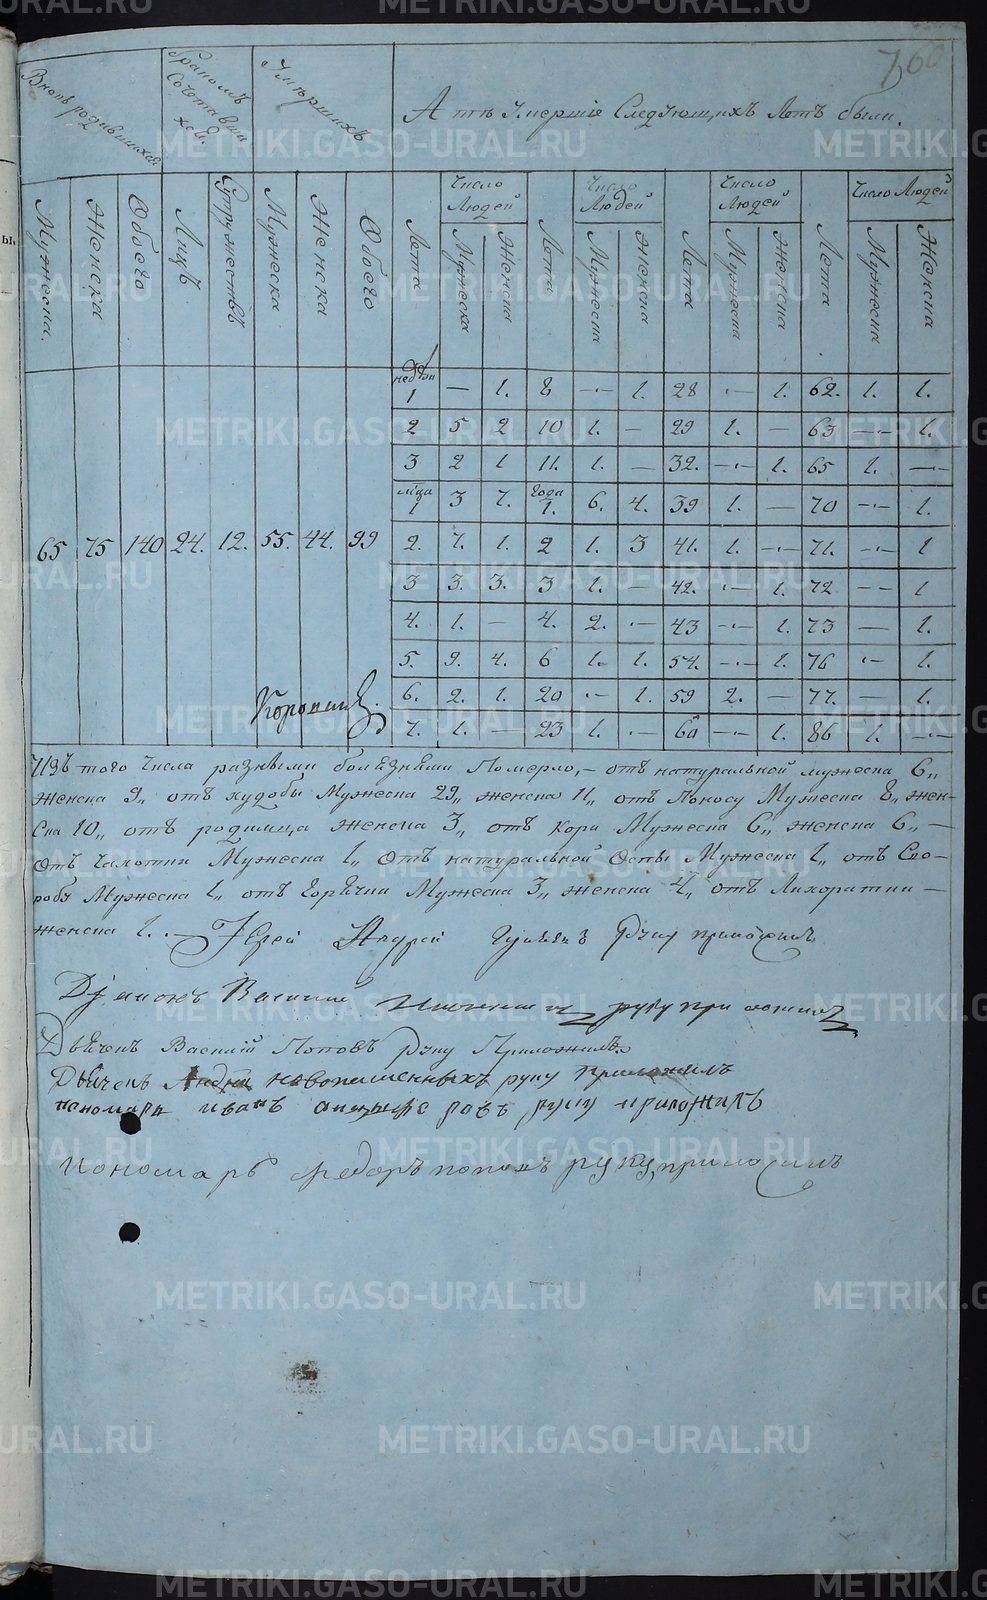 760
Вновь родившихся
Браком Сочетавшихся
Умерших
А тѣ Умершіе Слѣдующихъ Лѣтъ были.
Мужеска.
Женска
Обоего
Лицъ
Супружествъ
Мужеска
Женска
Обоего
Лѣта
Число Людей
Мужеска
Женска
Лѣта
Число Людей
Мужеска
Женска
Лѣта
Число Людей
Мужеска
Женска
Лѣта
Число Людей
Мужеска
Женска
1 — 1. 8 — 1. 28 — 1. 62. 1. 1.
2 5 2 10 1. — 29 1. — 63 — 1.
3 2 1 11. 1. — 32. — 1. 65 1. —
мца 1 3 7. года 1. 6. 4. 39 1. — 70 — 1.
65 75 140 24. 12. 55. 44. 99 2. 7. 1. 2 1. 3 41. 1. — 71. — 1
3 3. 3. 3 1. — 42. — 1. 72 — 1
4. 1. — 4. 2. — 43 — 1. 73 — 1.
5. 9. 4. 6 1. 1. 54. — 1. 76 — 1.
6. 2. 1. 20 — 1. 59 2. — 77. — 1.
7. 1. — 23 1. — 60 — 1. 86 1. —
Изъ того Числа разными болѣзнями Померло, — отъ натуральной мужеска 6„
Женска 9„ отъ худобы Мужеска 29„ женска 11„ отъ Поносу Мужеска 8„ жен-
ска 10„ отъ родимца женска 3„ отъ Кори Мужеска 6„ женска 6„ —
Отъ Чахотки Мужеска 1„ Отъ натуральной Оспы Мужеска 1„ отъ Ско-
робя Мужеска 1„ отъ Горячки Мужеска 3„ женска 4„ отъ Лихоратки —
женска 1. — Іерей Андрей руку приложилъ
Діаконъ Василий руку приложилъ
Дьячекъ Василій Поповъ руку Приложилъ
Дьячекъ Андрей новопашенныхъ руку приложилъ
пономарь иванъ руку приложилъ
пономарь федоръ поповъ руку приложилъ
METRIKI.GASO-URAL.RU